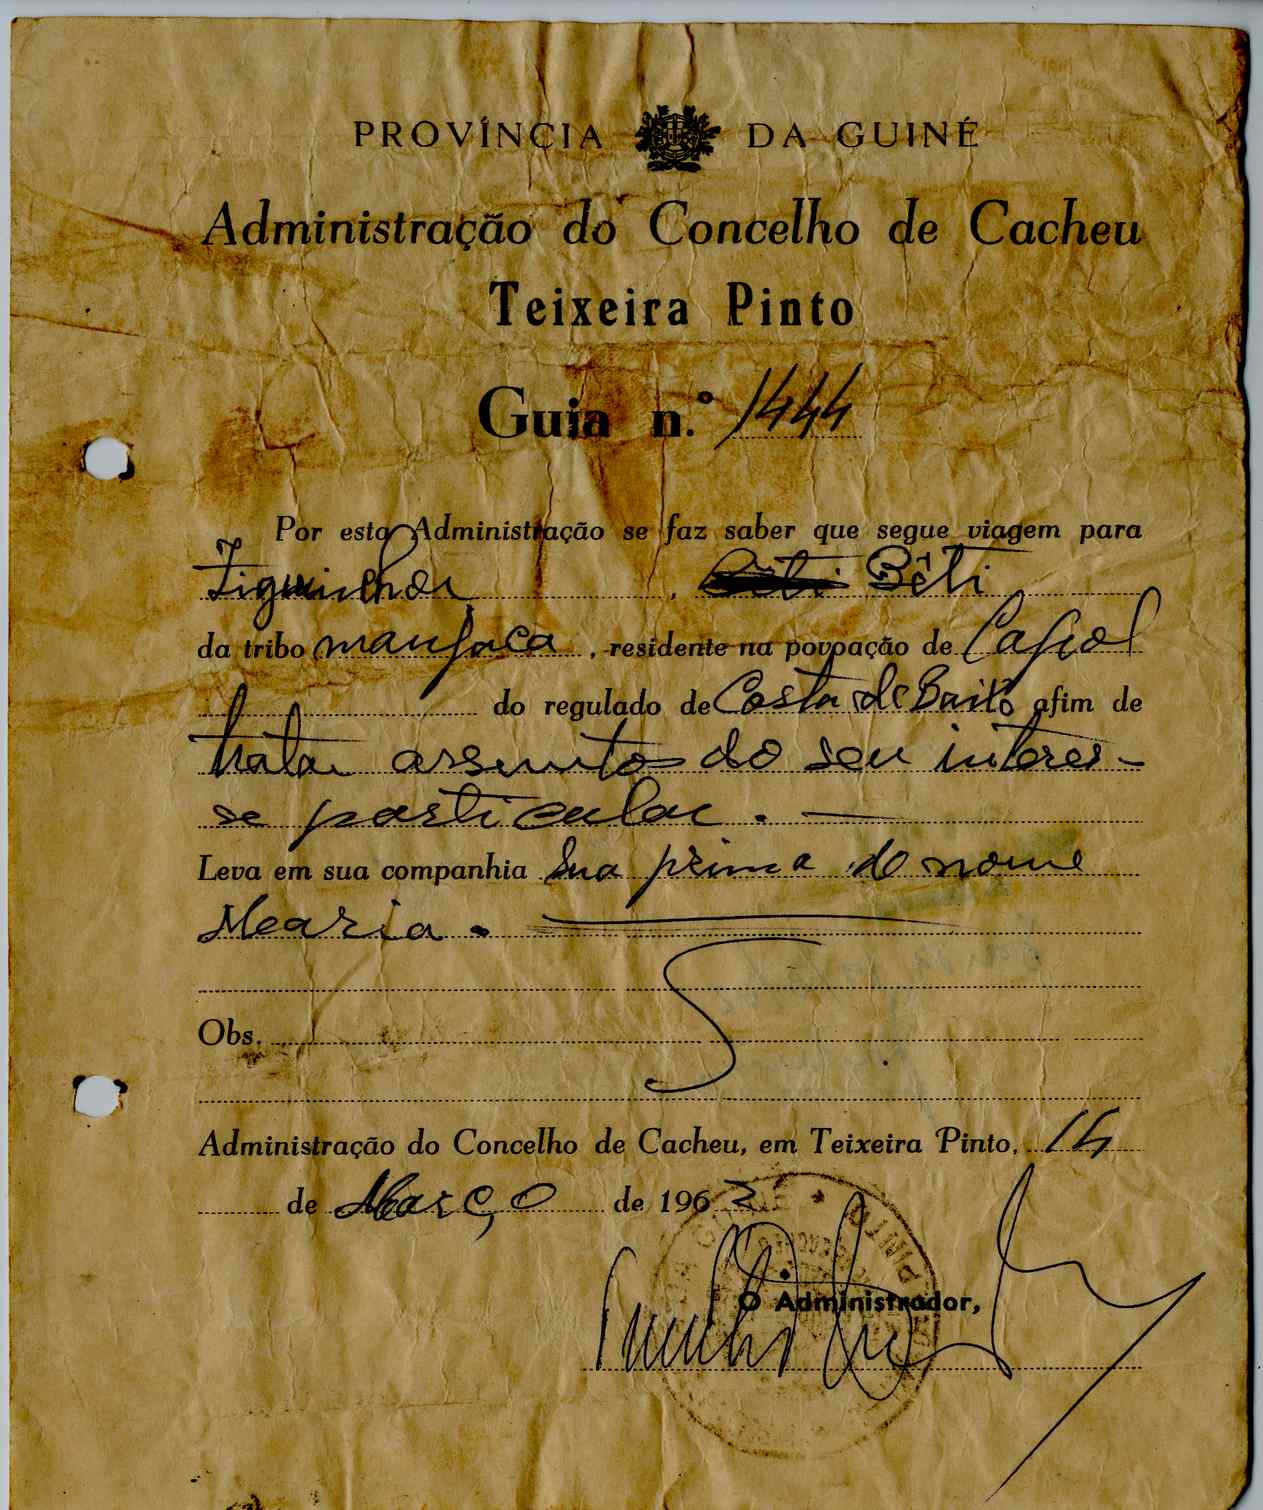 PROVÍNCIA DA GUINÉ
Administração do Concelho de Cacheu
Teixeira Pinto
Guia n.º 1444
Por esta Administração se faz saber que segue viagem para
Ziguinchor, Bêti
da tribo manjaca, residente na povoação de Cajiol
do regulado de Costa de Baixo afim de
tratar assuntos do seu interes-
se particular. —
Leva em sua companhia sua prima de nome
Maria.
Obs.
Administração do Concelho de Cacheu, em Teixeira Pinto, 14
de Março de 1963
PINTO
O Administrador,